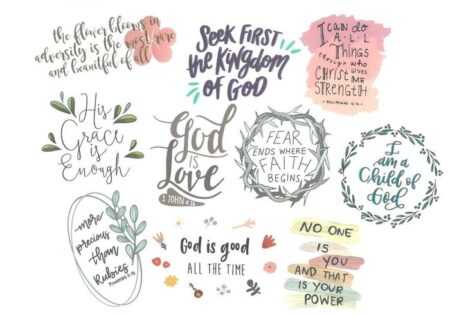 the flower blooms in
adversity is the most rare
and beautiful of all
SEEK FIRST
the KINGDOM
OF GOD
I CAN do
A·L·L
THINGS
through who
CHRIST GIVES ME
STRENGTH
His
Grace
is
Enough
God
IS
Love
1 JOHN 4:16
FEAR
ENDS WHERE
FAITH
BEGINS
I
am a
Child of
God
more
precious
than
Rubies
Proverbs
God is good
ALL THE TIME
NO ONE
IS
YOU
AND THAT
IS YOUR
POWER